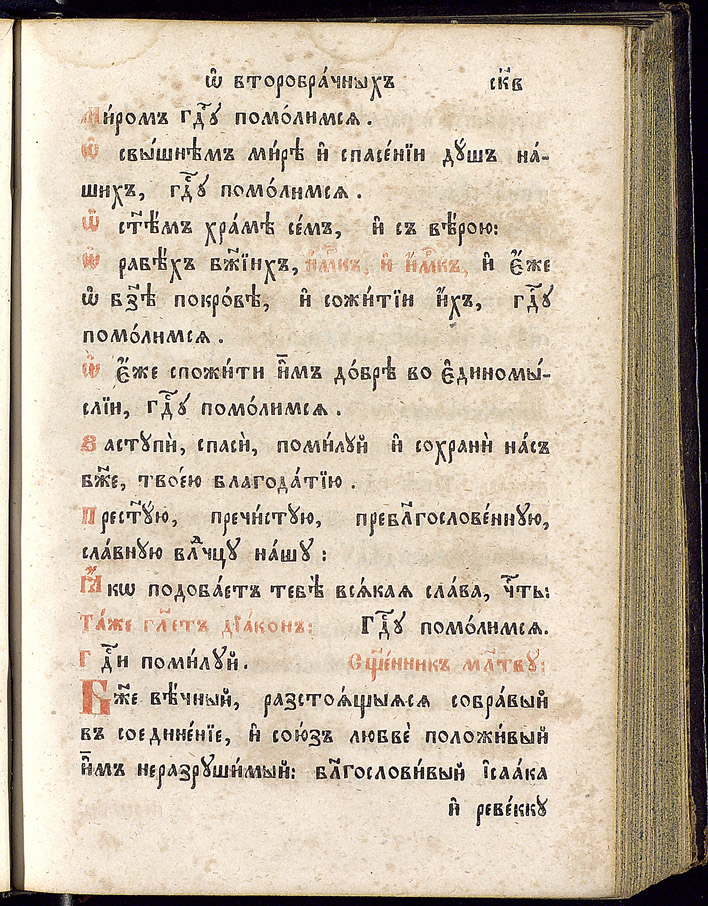 Ѿ второбра́чныхъ ск҃в
Ми́ромъ гдⷭ҇ꙋ помо́лимсѧ.
Ѿ свы́шнѣмъ ми́рѣ и҆ спасе́нїи дꙋшъ на́-
шихъ, гдⷭ҇ꙋ помо́лимсѧ.
Ѿ ст҃ѣ́мъ хра́мѣ се́мъ, и҆ съ вѣ́рою:
Ѿ рабѣ́хъ бж҃їихъ, и҆́м҃къ, и҆ и҆́м҃къ, и҆ є҆́же
ѽ бз҃ѣ покро́вѣ, и҆ сожи́тїи и҆́хъ, гдⷭ҇ꙋ
помо́лимсѧ.
Ѿ є҆́же спожи́ти и҆̀мъ до́брѣ во є҆диномы́-
слїи, гдⷭ҇ꙋ помо́лимсѧ.
Застꙋпѝ, спасѝ, поми́лꙋй и҆ сохранѝ на́съ
бж҃е, твое́ю благода́тїю.
Прест҃ꙋю, пречи́стꙋю, пребл҃гослове́ннꙋю,
сла́внꙋю влⷣчцꙋ на́шꙋ:
Ꙗ҆́кѡ подоба́етъ тебѣ̀ всѧ́каѧ сла́ва, че́ⷭ҇ть:
Та́же гл҃етъ дїа́конъ: Гдⷭ҇ꙋ помо́лимсѧ.
Гдⷭ҇и поми́лꙋй. Сщ҃е́нникъ мл҃твꙋ:
Бж҃е вѣ́чный, разстоѧ́щыѧсѧ собра́вый
въ соедине́нїе, и҆ сою́зъ любвѐ положи́вый
и҆̀мъ неразрꙋши́мый: бл҃гослови́вый і҆саа́ка
и҆ реве́ккꙋ